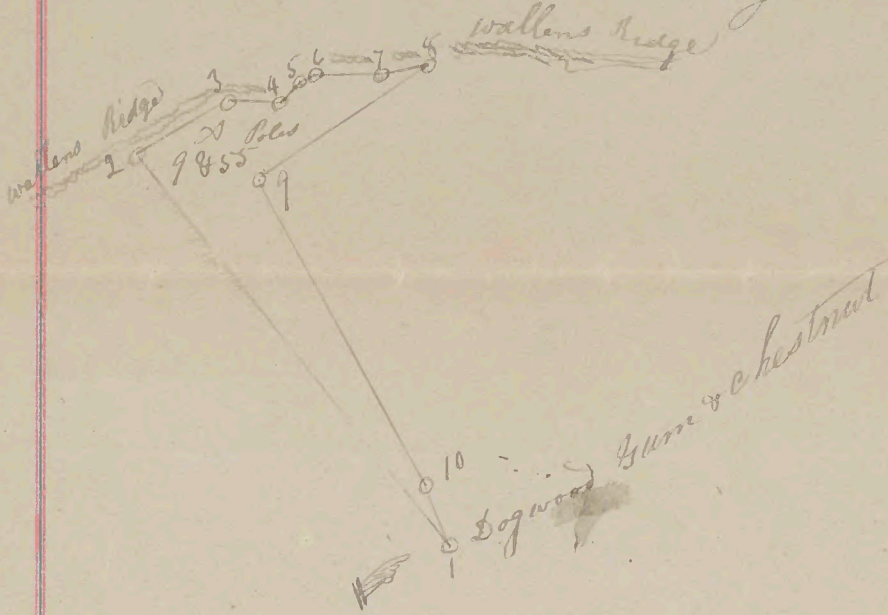 wallens Ridge
wallens Ridge
3 4 5 6 7 8
2
A Poles
9 & 55
9
10
Dogwood Gum & Chestnut
1